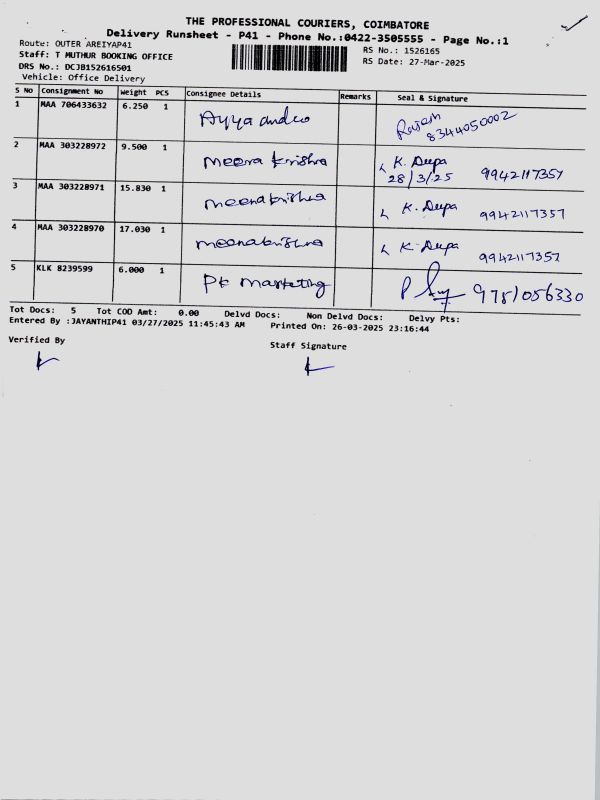 THE PROFESSIONAL COURIERS, COIMBATORE
Delivery Runsheet - P41 - Phone No.:0422-3505555 - Page No.:1
Route: OUTER AREIYAP41
Staff: T MUTHUR BOOKING OFFICE
DRS No.: DCJB152616501
Vehicle: Office Delivery
RS No.: 1526165
RS Date: 27-Mar-2025
S NO Consignment No Weight PCS Consignee Details Remarks Seal & Signature
1 MAA 706433632 6.250 1 Ayya andco 8344050002
2 MAA 303228972 9.500 1 Meena krishna K. Deepa 28/3/25 9942117357
3 MAA 303228971 15.830 1 meenakrishna K. Deepa 9942117357
4 MAA 303228970 17.030 1 meenakrishna K. Deepa 9942117357
5 KLK 8239599 6.000 1 PK marketing 9781056330
Tot Docs: 5 Tot COD Amt: 0.00 Delvd Docs: Non Delvd Docs: Delvy Pts:
Entered By :JAYANTHIP41 03/27/2025 11:45:43 AM Printed On: 26-03-2025 23:16:44
Verified By
Staff Signature